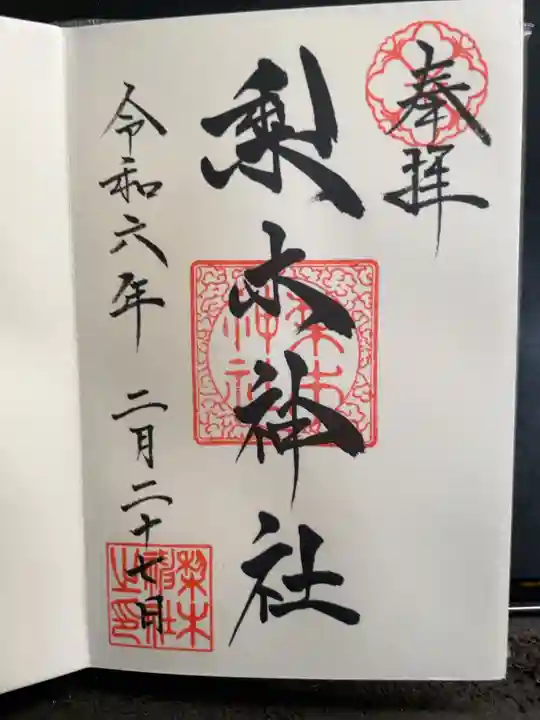 奉拝
梨木神社
令和六年 二月二十七日
梨木
神社
梨木
神社
之印